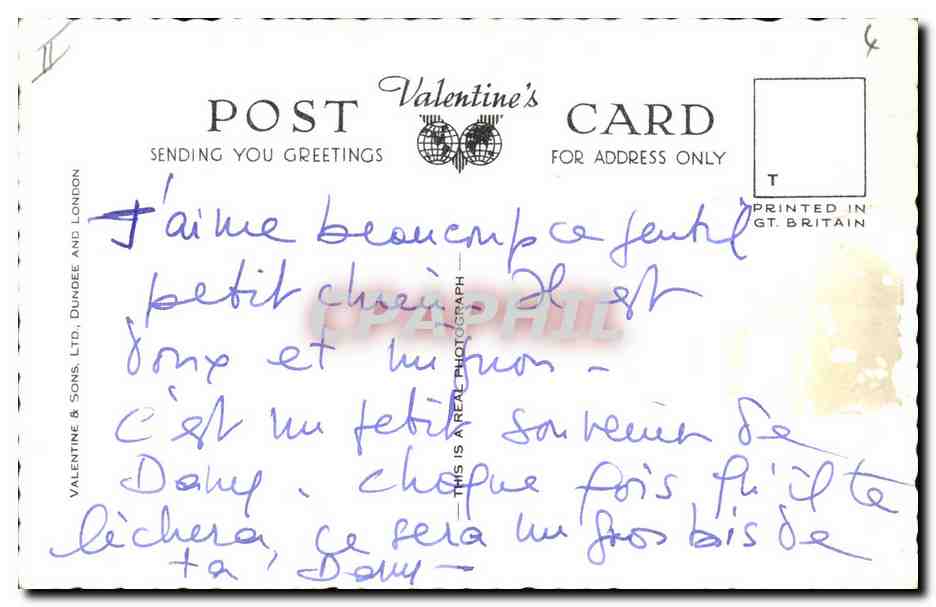 II
Valentine's
POST CARD
SENDING YOU GREETINGS
FOR ADDRESS ONLY
T
PRINTED IN
GT. BRITAIN
VALENTINE & SONS, LTD., DUNDEE AND LONDON
THIS IS A REAL PHOTOGRAPH
CPAPHIL
J'aime beaucoup ce gentil
petit chien. Il est
doux et mignon -
c'est un petit souvenir de
Dany. Chaque fois qu'il te
lèchera, ce sera un gros bis de
ta Dany -